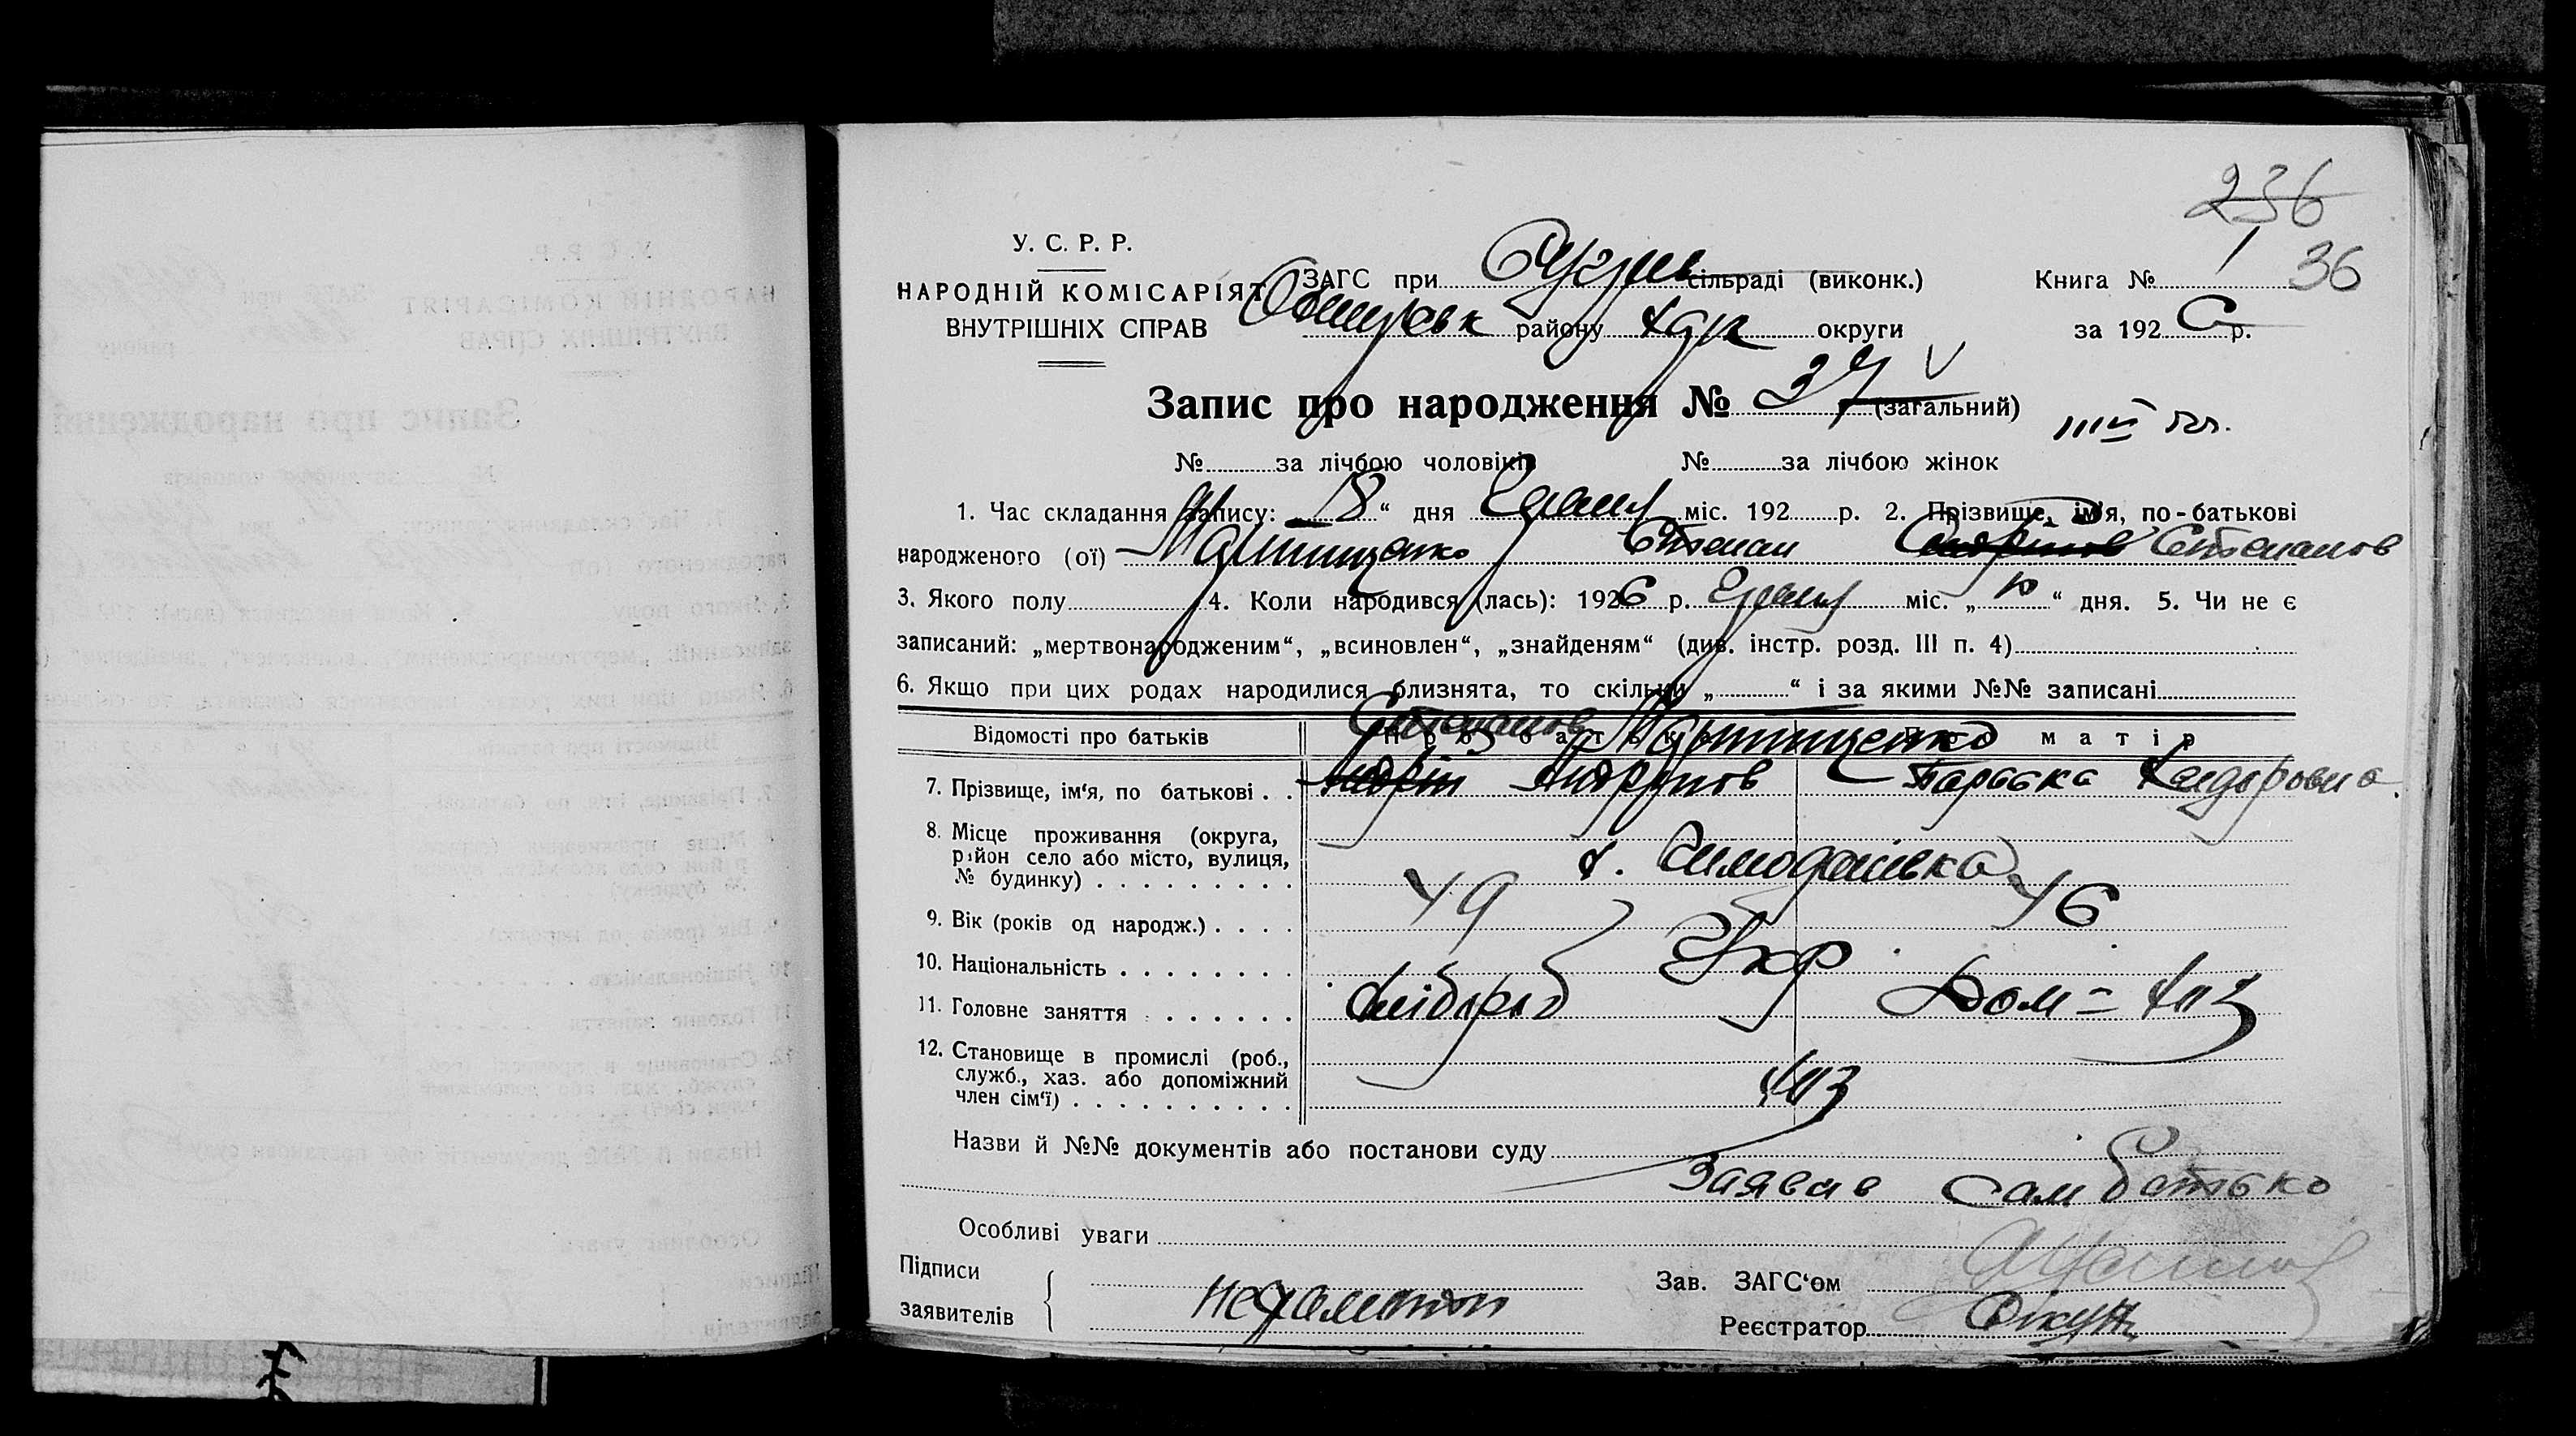 236
36
У. С. Р. Р.
НАРОДНІЙ КОМІСАРІЯТ
ВНУТРІШНІХ СПРАВ
ЗАГС при сільраді (виконк.)
району Харк округи
Книга № 1
за 1926 р.
Запис про народження № 37 (загальний)
№ за лічбою чоловіків № за лічбою жінок
1. Час складання запису: „18“ дня міс. 192 р. 2. Прізвище, ім'я, по-батькові
народженого (ої) Мартищенко Степан Степанов
3. Якого полу 4. Коли народився (лась): 1926 р. міс. „10“ дня. 5. Чи не є
записаний: „мертвонародженим“, „всиновлен“, „знайденям“ (див. інстр. розд. III п. 4)
6. Якщо при цих родах народилися близнята, то скільки „ “ і за якими №№ записані
Відомості про батьків Про батька Про матір
Мартищенко
7. Прізвище, ім'я, по батькові . . Параска
8. Місце проживання (округа,
район село або місто, вулиця,
№ будинку) . . . . . . . . . х. Чемоданівка
9. Вік (років од народж.) . . . . 49 46
10. Національність . . . . . . . . Укр
11. Головне заняття . . . . . . . хлібороб Дом-
12. Становище в промислі (роб.,
служб., хаз. або допоміжний
член сім'ї) . . . . . . . . . .
Назви й №№ документів або постанови суду
Заявив сам батько
Особливі уваги
Підписи
заявителів
неграмотн
Зав. ЗАГС'ом
Реєстратор